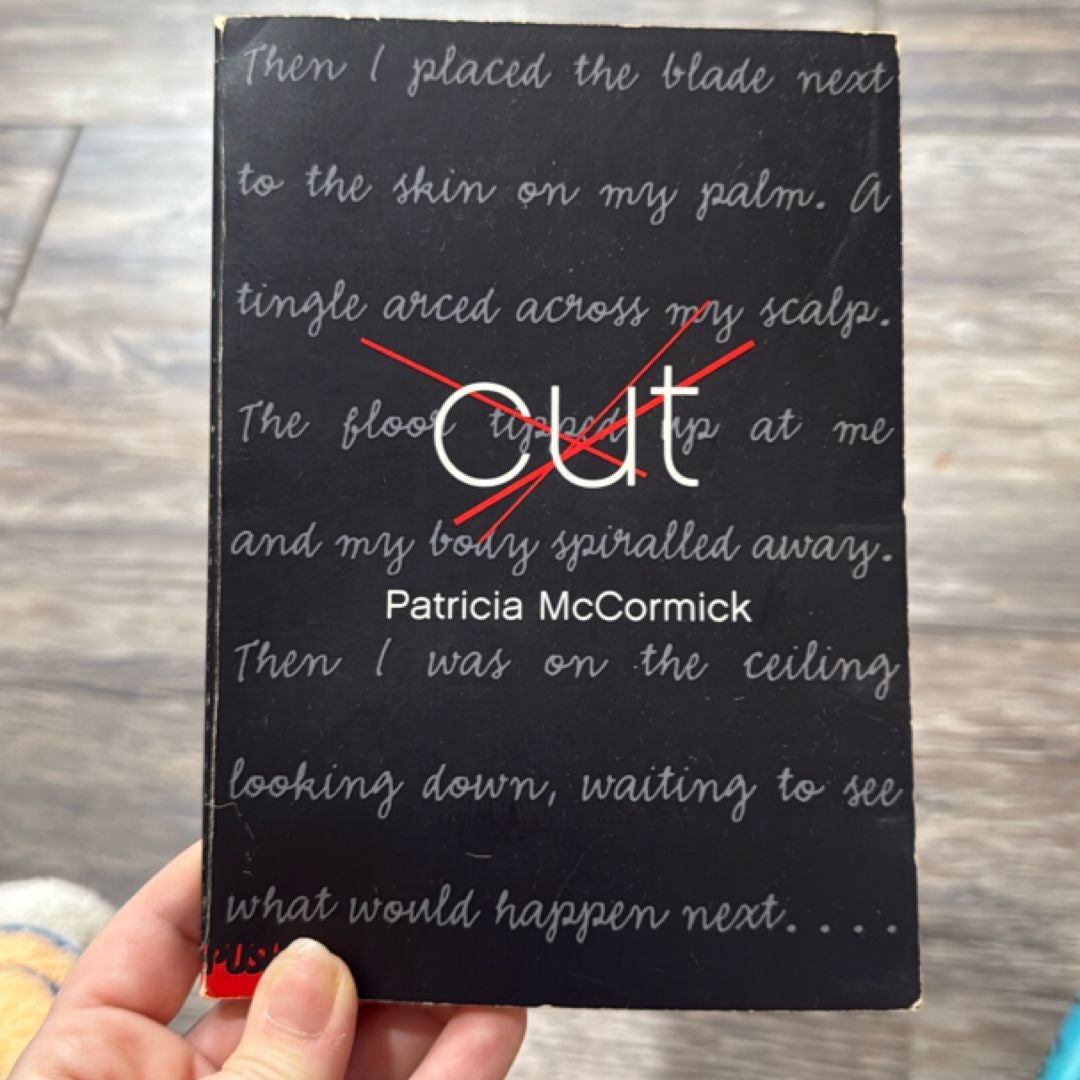 Then I placed the blade next
to the skin on my palm. A
tingle arced across my scalp.
cut
The floor tipped up at me
and my body spiralled away.
Patricia McCormick
Then I was on the ceiling
looking down, waiting to see
what would happen next....